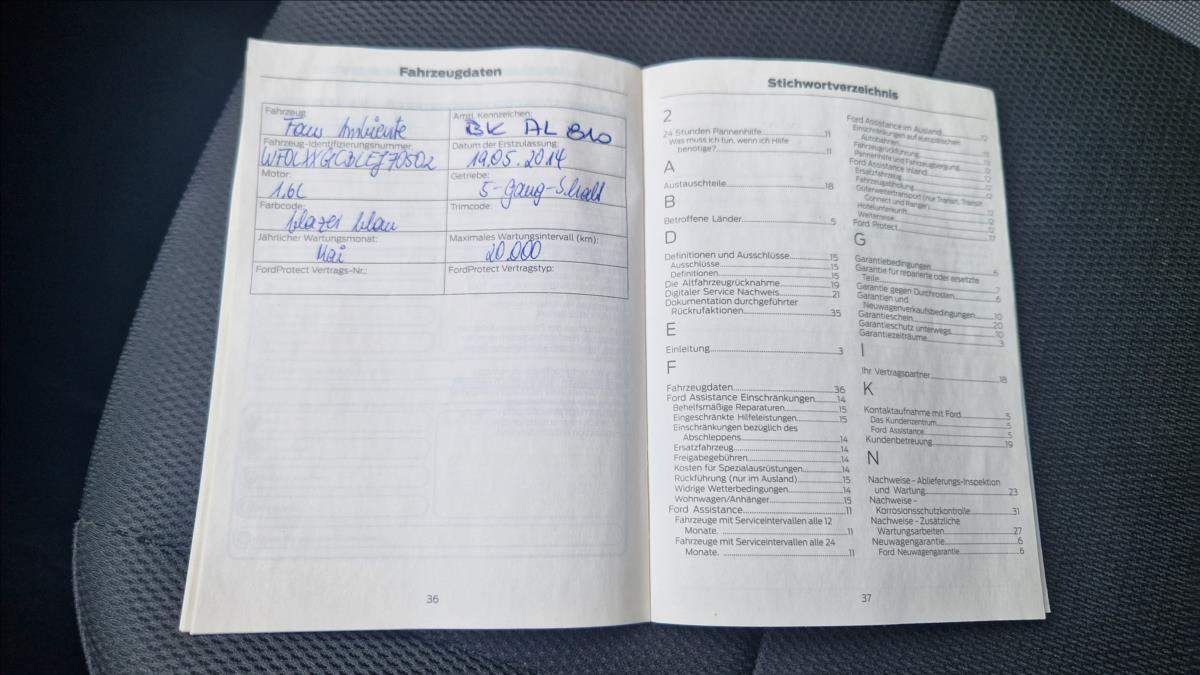 Fahrzeugdaten
Fahrzeug:
Focus Ambiente
Amtl. Kennzeichen:
BK AL 810
Fahrzeug-Identifizierungsnummer:
Datum der Erstzulassung:
19.05.2014
Motor:
1,6L
Getriebe:
5-Gang-Schalt
Farbcode:
blazer blau
Trimcode:
Jährlicher Wartungsmonat:
Mai
Maximales Wartungsintervall (km):
20.000
FordProtect Vertrags-Nr.:
FordProtect Vertragstyp:
36
Stichwortverzeichnis
2
24 Stunden Pannenhilfe 11
Was muss ich tun, wenn ich Hilfe
benötige? 11
A
Austauschteile 18
B
Betroffene Länder 5
D
Definitionen und Ausschlüsse 15
Ausschlüsse 15
Definitionen 15
Die Altfahrzeugrücknahme 19
Digitaler Service Nachweis 21
Dokumentation durchgeführter
Rückrufaktionen 35
E
Einleitung 3
F
Fahrzeugdaten 36
Ford Assistance Einschränkungen 14
Behelfsmäßige Reparaturen 15
Eingeschränkte Hilfeleistungen 15
Einschränkungen bezüglich des
Abschleppens 14
Ersatzfahrzeug 14
Freigabegebühren 14
Kosten für Spezialausrüstungen 14
Rückführung (nur im Ausland) 15
Widrige Wetterbedingungen 14
Wohnwagen/Anhänger 15
Ford Assistance 11
Fahrzeuge mit Serviceintervallen alle 12
Monate. 11
Fahrzeuge mit Serviceintervallen alle 24
Monate. 11
Ford Assistance im Ausland
Einschränkungen auf europäischen
Autobahnen
Fahrzeugrückführung
Pannenhilfe und Fahrzeugbergung
Ford Assistance Inland
Ersatzfahrzeug
Fahrzeugabholung
Güterweitertransport (nur Transit, Transit
Connect und Ranger)
Hotelunterkunft
Weiterreise
Ford Protect 17
G
Garantiebedingungen 6
Garantie für reparierte oder ersetzte
Teile 7
Garantie gegen Durchrosten 6
Garantien und
Neuwagenverkaufsbedingungen 10
Garantieschein 20
Garantieschutz unterwegs 10
Garantiezeiträume 3
I
Ihr Vertragspartner 18
K
Kontaktaufnahme mit Ford 5
Das Kundenzentrum 5
Ford Assistance 5
Kundenbetreuung 19
N
Nachweise - Ablieferungs-Inspektion
und Wartung 23
Nachweise -
Korrosionsschutzkontrolle 31
Nachweise - Zusätzliche
Wartungsarbeiten 27
Neuwagengarantie 6
Ford Neuwagengarantie 6
37